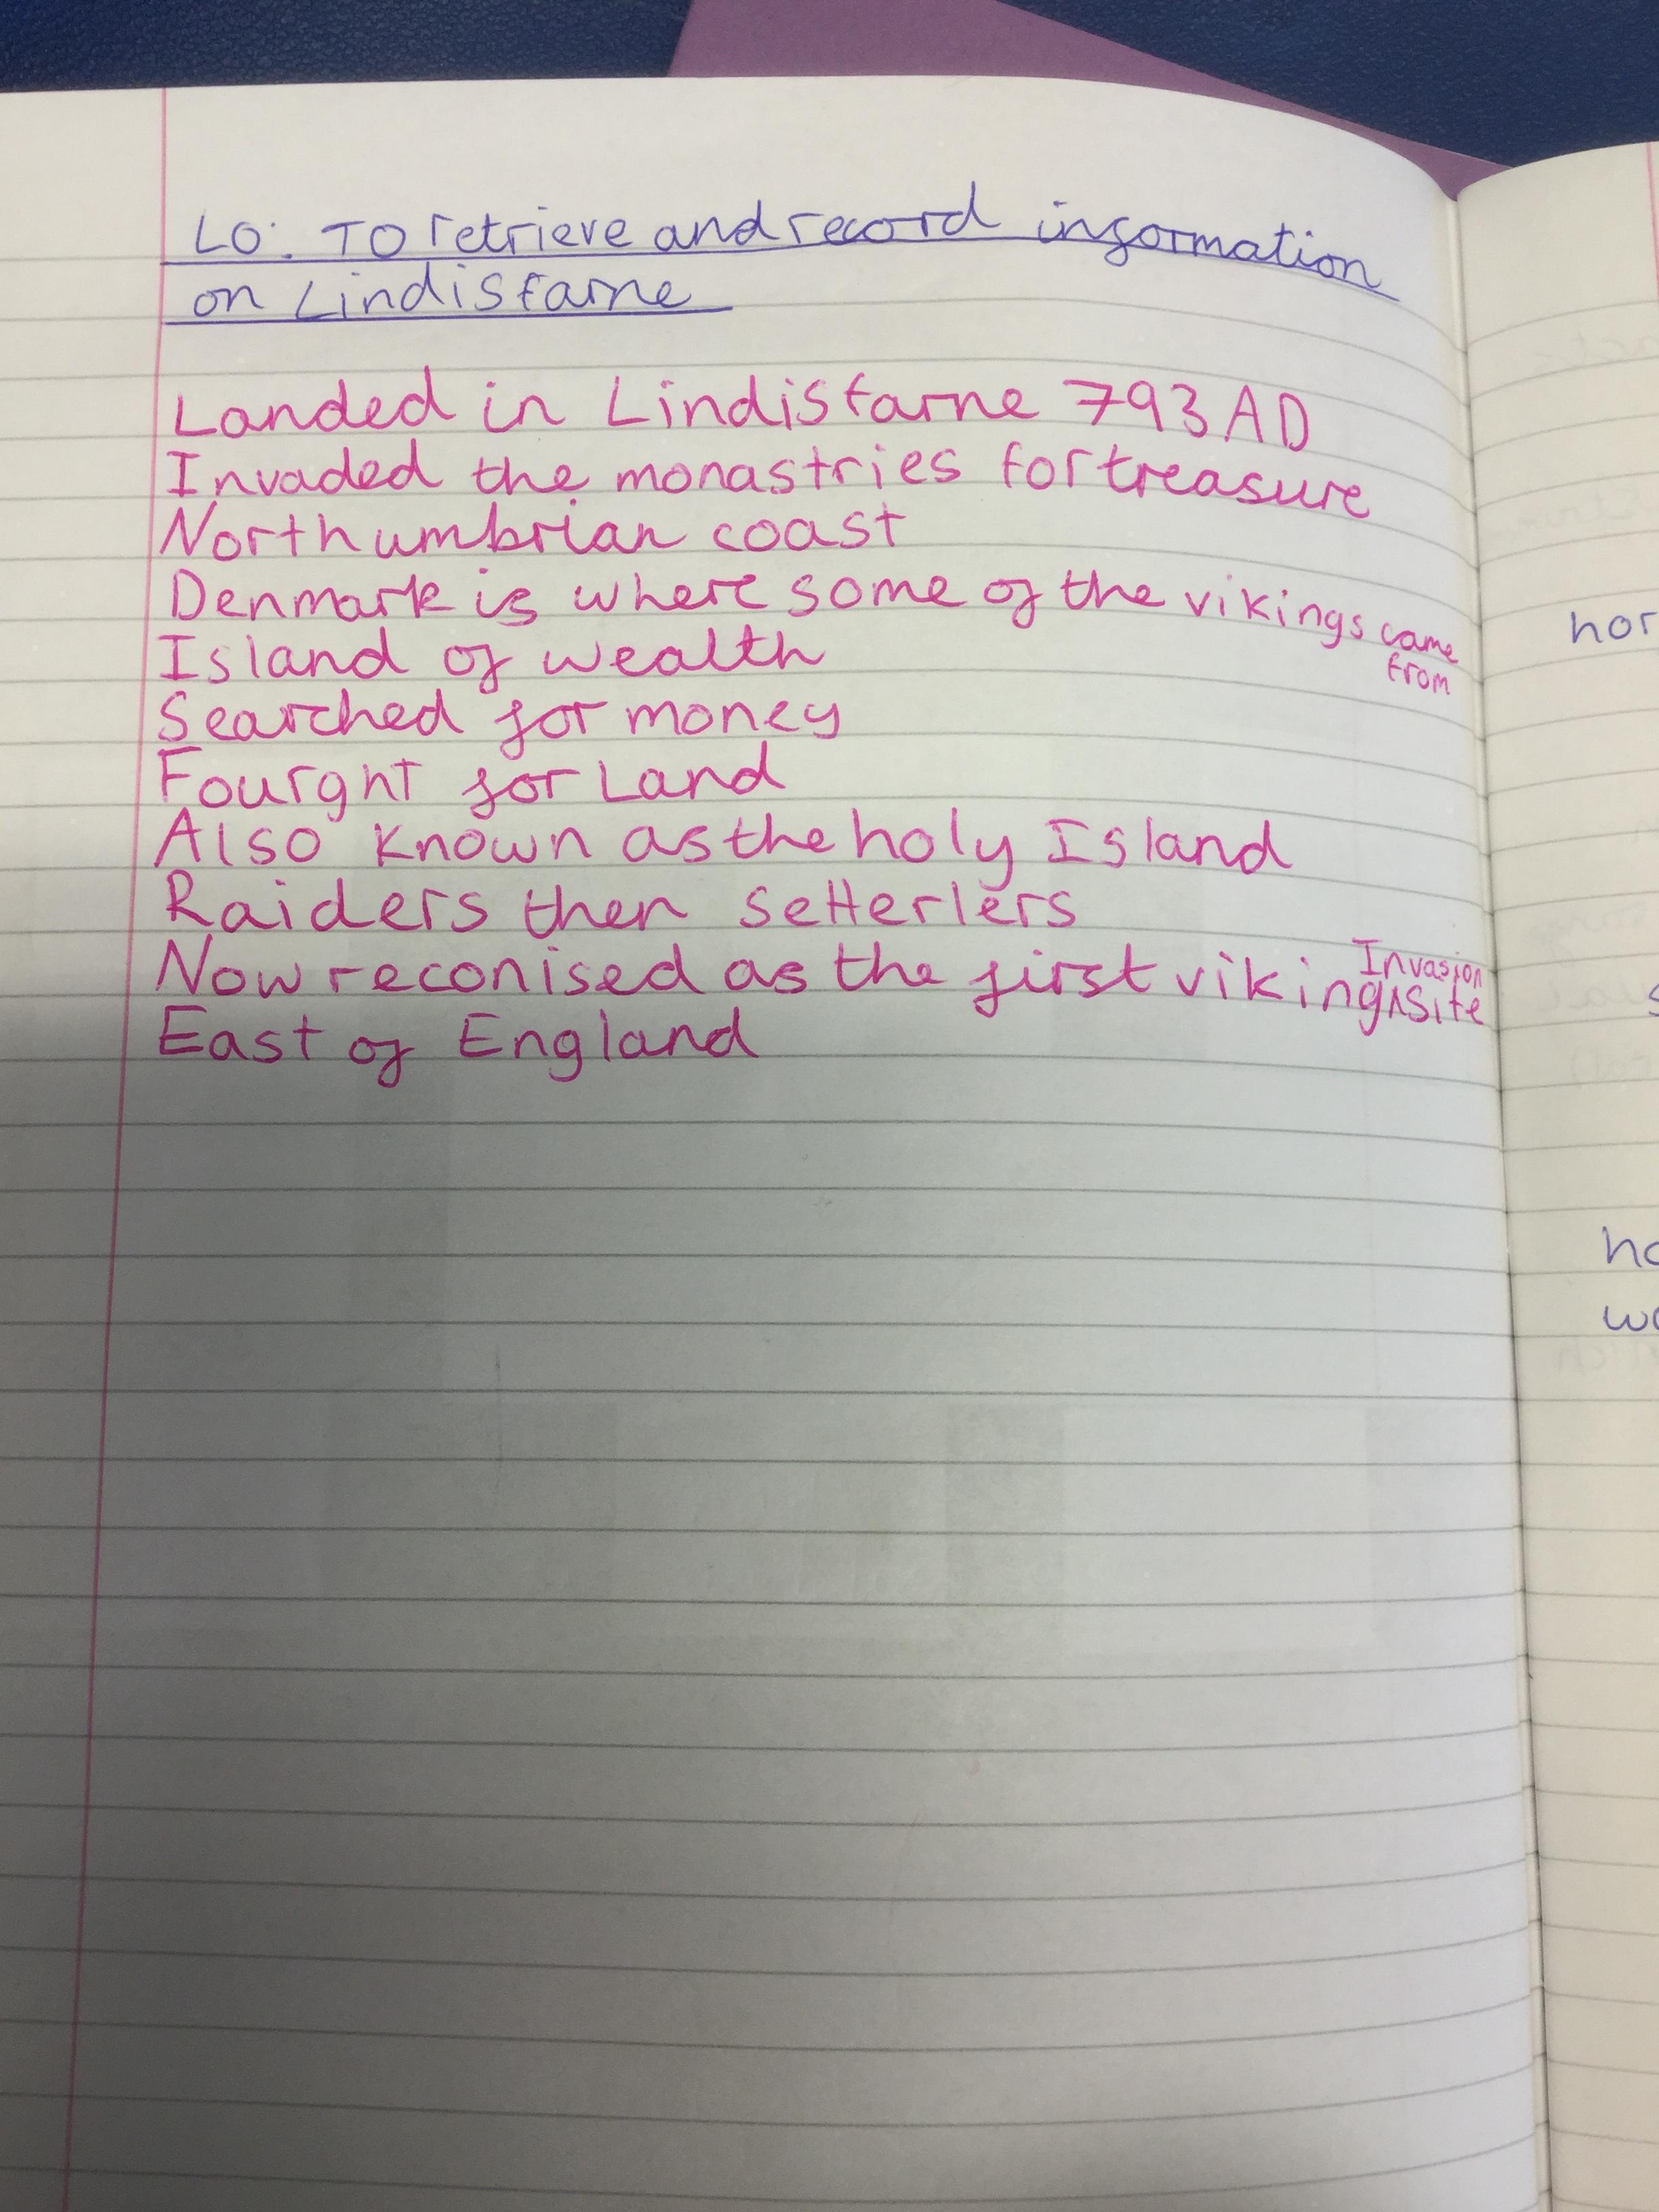 LO: To retrieve and record information
on Lindisfarne
Landed in Lindisfarne 793AD
Invaded the monastries for treasure
Northumbrian coast
Denmark is where some of the vikings came
from
Island of wealth
Searched for money
Fourght for Land
Also known as the holy Island
Raiders then setterlers
Now reconised as the first viking Invasion site
East of England